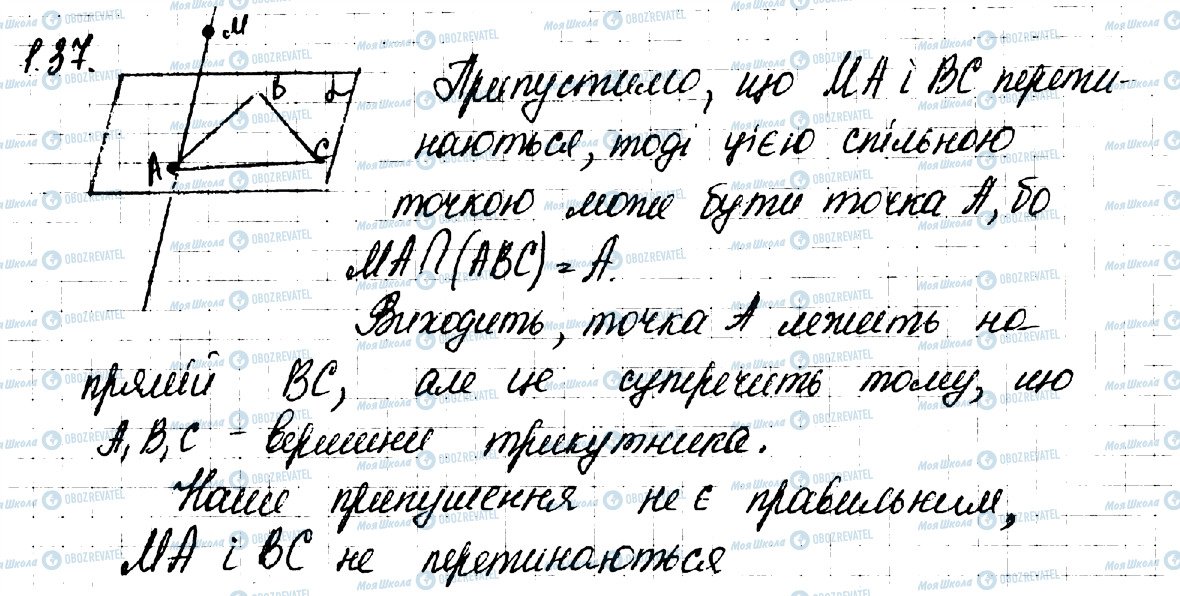 1.37.
M
B
α
A
C
Припустимо, що MA і BC перети-
наються, тоді цією спільною
точкою може бути точка A, бо
MA∩(ABC) = A.
Виходить, точка A лежить на
прямій BC, але це суперечить тому, що
A, B, C - вершини трикутника.
Наше припущення не є правильним,
MA і BC не перетинаються
МояШкола OBOZREVATEL